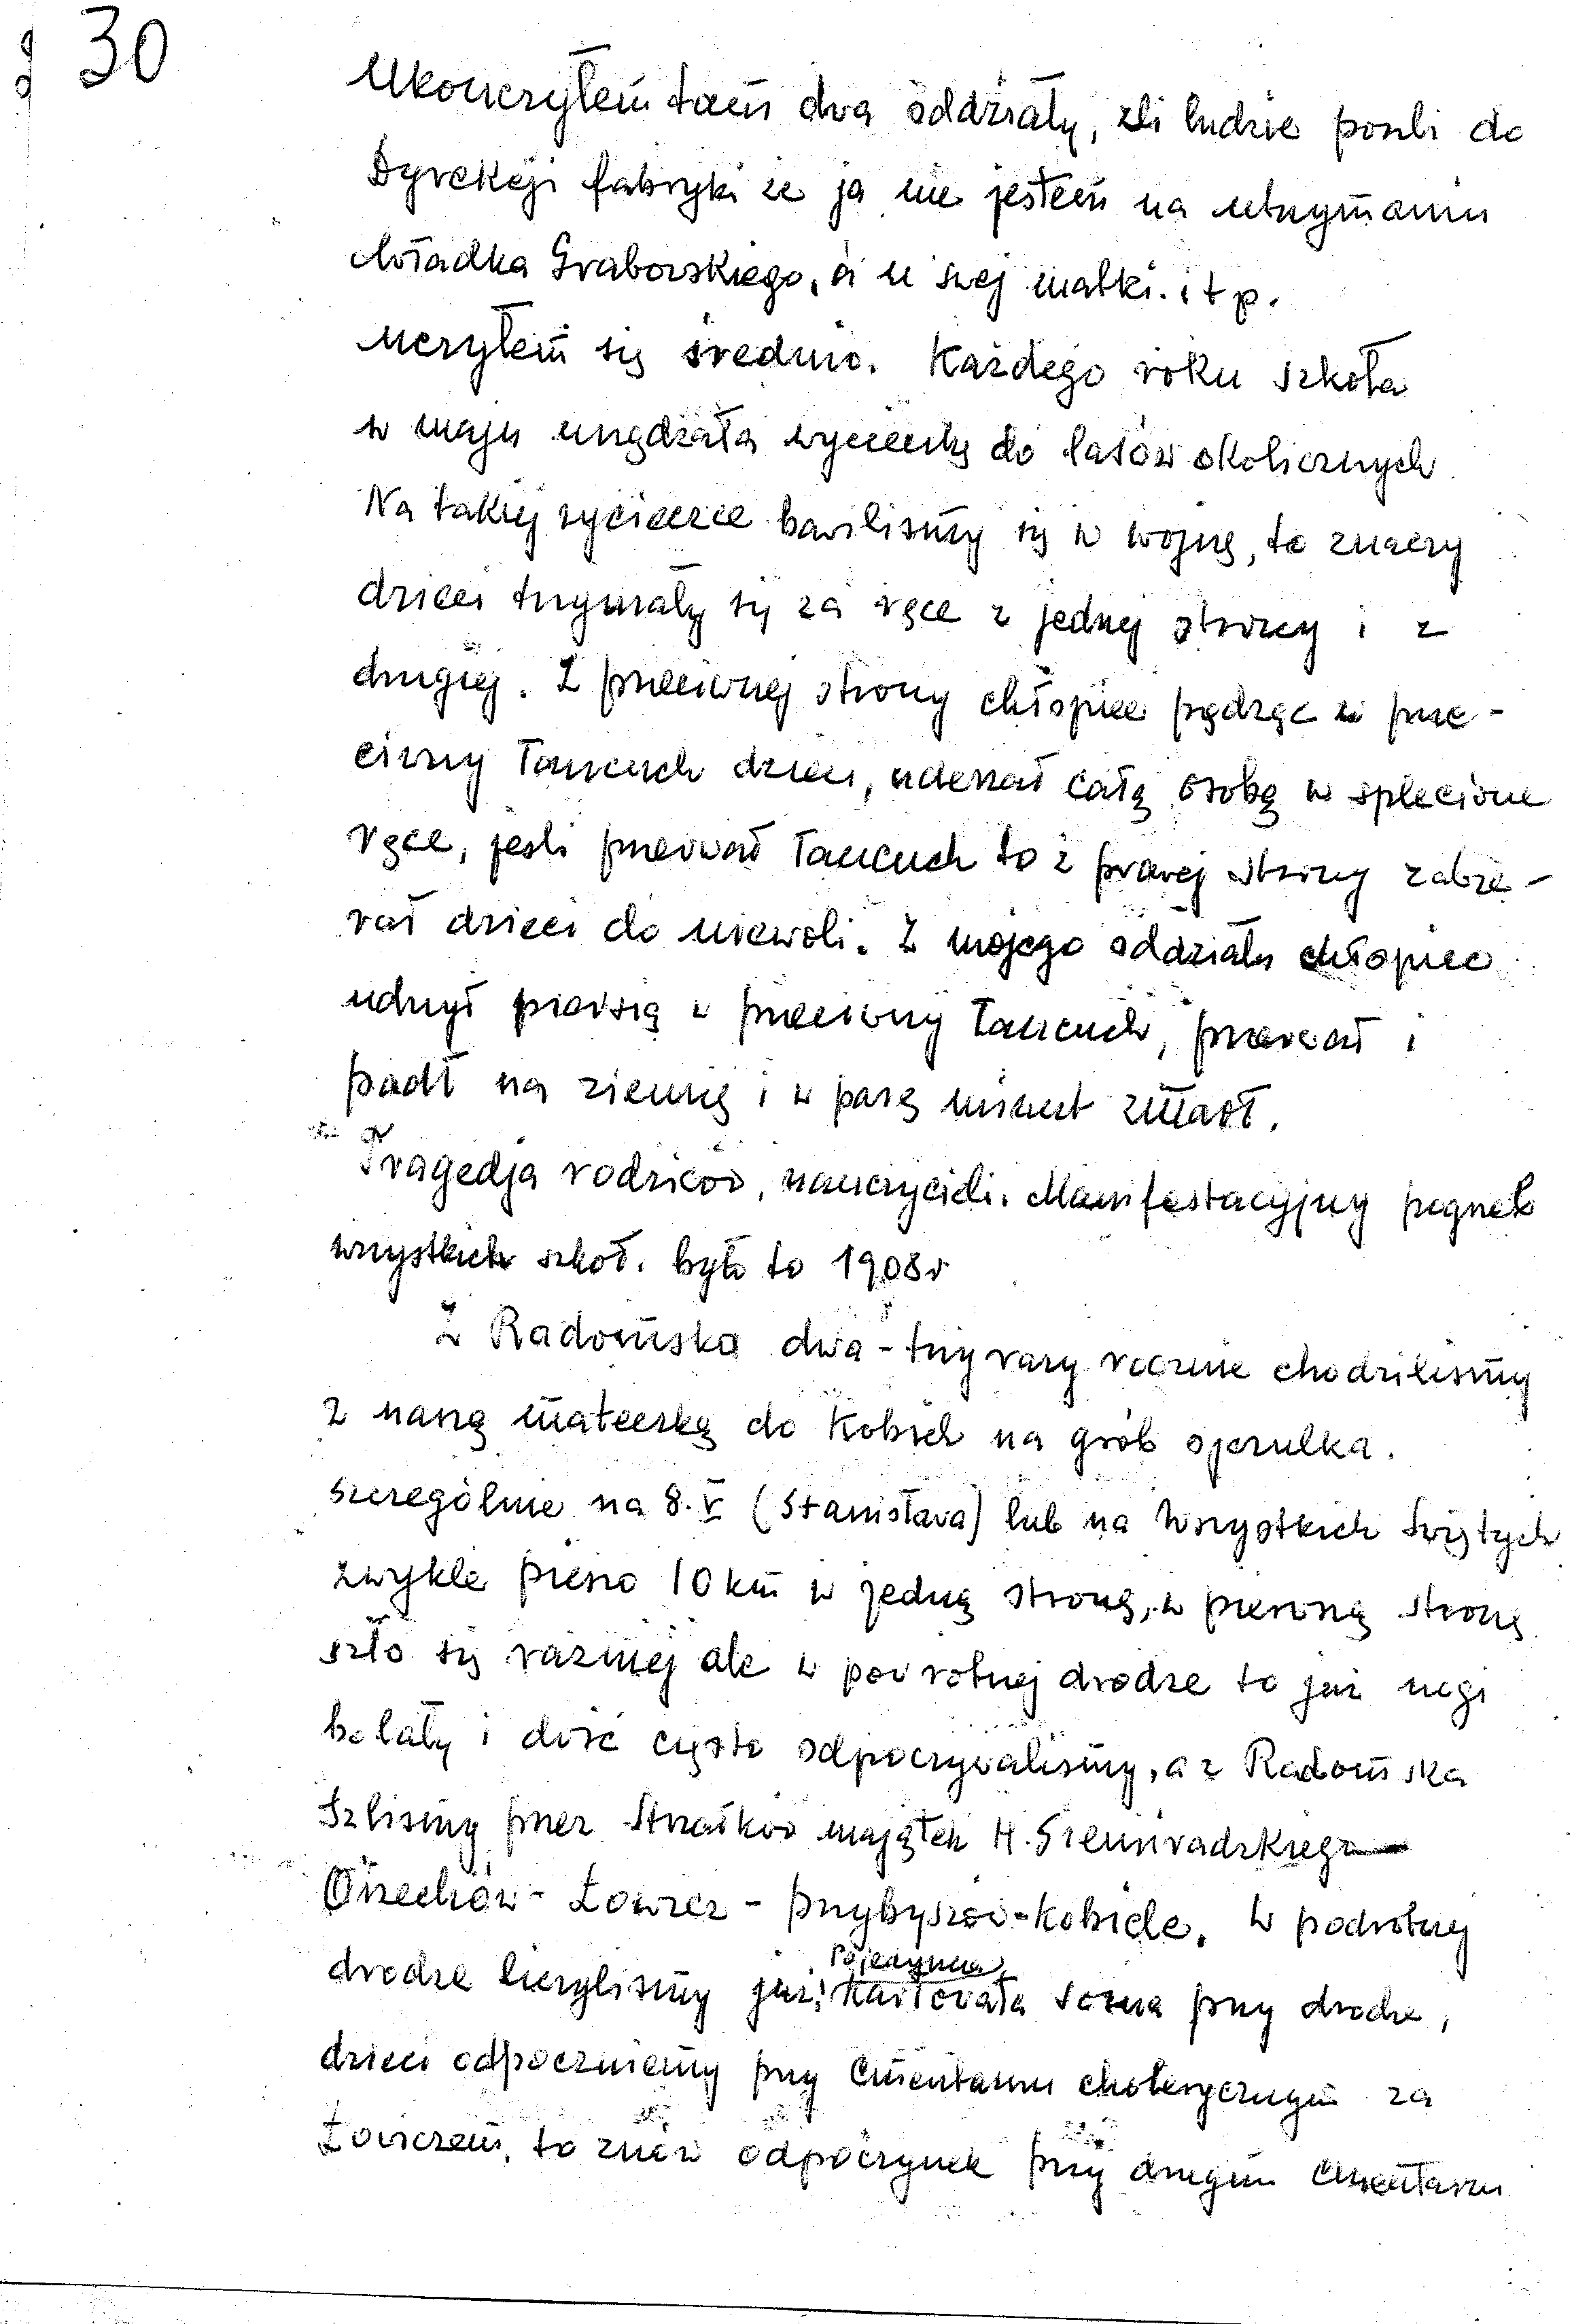 30
Ukończyłem tam dwa oddziały, źli ludzie poszli do
Dyrekcji fabryki że ja nie jestem na utrzymaniu
Władka Graborskiego, a u swej matki. i t p.
uczyłem się średnio. Każdego roku szkoła
w maju urządzała wycieczkę do lasów okolicznych
Na takiej wycieczce bawiliśmy się w wojnę, to znaczy
dzieci trzymały się za ręce z jednej strony i z
drugiej. Z przeciwnej strony chłopiec pędząc w prze-
ciwny łańcuch dzieci, uderzał całą osobą w splecione
ręce, jeśli przerwał łańcuch to z prawej strony zabie-
rał dzieci do niewoli. Z mojego oddziału chłopiec
udrzył piersią w przeciwny łańcuch, przerwał i
padł na ziemię i w parę minut zmarł.
Tragedja rodziców, nauczycieli. Manifestacyjny pogrzeb
wszystkich szkoł. było to 1908 r
Z Radomska dwa - trzy razy rocznie chodziliśmy
z naszą mateczką do Kobiel na grób ojczulka.
szczególnie na 8. V (Stanisława) lub na Wszystkich Świętych
zwykle pieszo 10 km w jedną stronę, w pierwszą stronę
szło się raźniej ale w powrotnej drodze to już nogi
bolały i dość często odpoczywaliśmy, a z Radomska
Szliśmy przez Strzałków majątek H. Siemiradzkiego
Orzechów - Łowicz - przybyszów - Kobiele. W podrotnej
drodze liczyliśmy już, pojedyncza karłowata sosna przy drodze,
dzieci odpoczniemy przy Cmentarzu cholerycznym za
Łowiczem, to znów odpoczynek przy drugim Cmentarzu